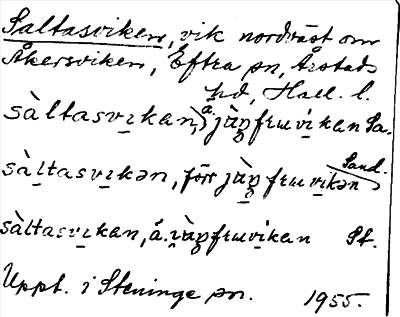 Saltasviken, vik nordväst om
Åkersviken, Eftra sn, Årstads
hd, Hall. l.
sàltasvi̱kan, å. jàp̱fruvi̱kan Sa.
Sand.
sàḻtasvi̱kən, förr jàp̱fruvi̱kən
sàltasvi̱kan, å. i̯àp̱fruvi̱kan St.
Uppt. i Steninge sn. 1955.